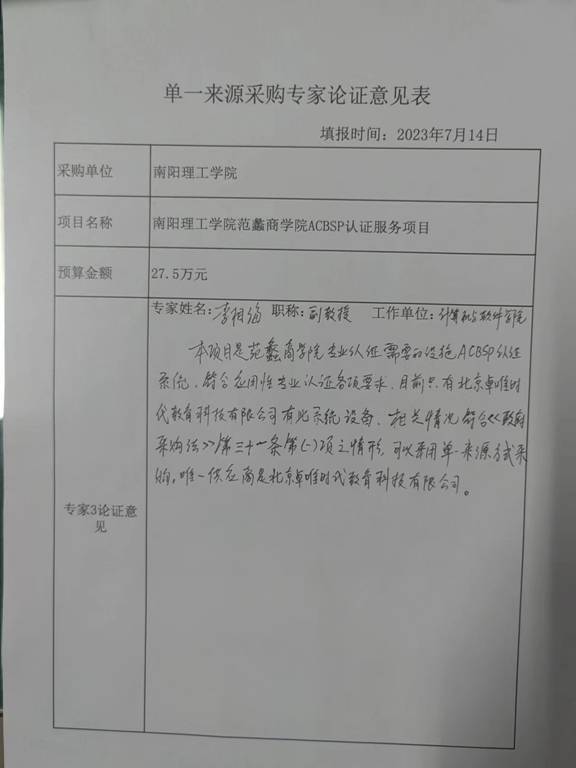 单一来源采购专家论证意见表
填报时间：2023年7月14日
采购单位 南阳理工学院
项目名称 南阳理工学院范蠡商学院ACBSP认证服务项目
预算金额 27.5万元
专家3论证意见
专家姓名：李相海 职称：副教授 工作单位：计算机与软件学院
本项目是范蠡商学院专业认证需要的设施ACBSP认证
系统，符合应用性专业认证各项要求，目前只有北京卓唯时
代教育科技有限公司有此系统设备、相关情况符合《政府
采购法》第三十一条第（一）项之情形，可以采用单一来源方式采
购，唯一供应商是北京卓唯时代教育科技有限公司。